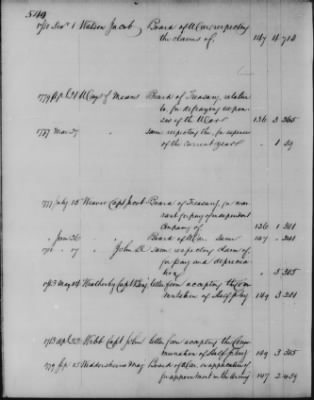 549
Watson Jacob Board of War respecting
the claims of. 147 4 713
1779 Ways & Means Board of Treasury relative
to for defraying expen-
ses of the War 136 3 365
Mar 27 same respecting the for expences
of the current year - 1 39
1777 July 15 Weaver Capt Jacob Board of Treasury for war
rant for pay of independent
company of 136 1 301
" Jan 26 " Board of War same 147 - 301
17 " John same respecting claim of
for pay and deprecia
tion - 5 305
1783 May Weatherby Capt Benj letter from accepting the com
mutation of half pay 149 3 201
1783 Webb Capt John letter from accepting the Com
mutation of half pay 149 3 365
1779 Sep 15 Maj Board of War on application of
for appointment in the Army 147 2 439